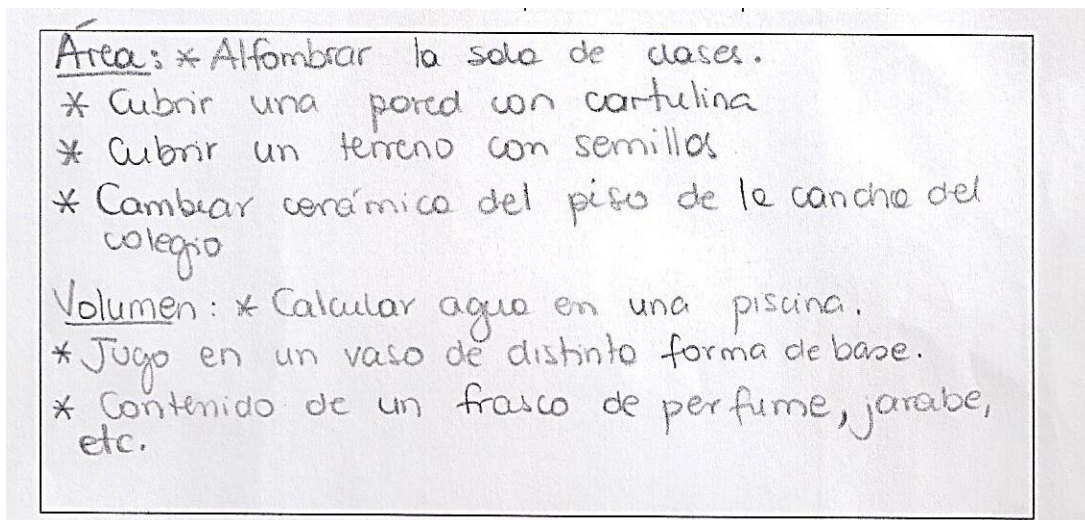 Área: * Alfombrar la sala de clases.
* Cubrir una pared con cartulina
* Cubrir un terreno con semillas
* Cambiar cerámica del piso de la cancha del
colegio
Volumen: * Calcular agua en una piscina.
* Jugo en un vaso de distinto forma de base.
* Contenido de un frasco de perfume, jarabe,
etc.